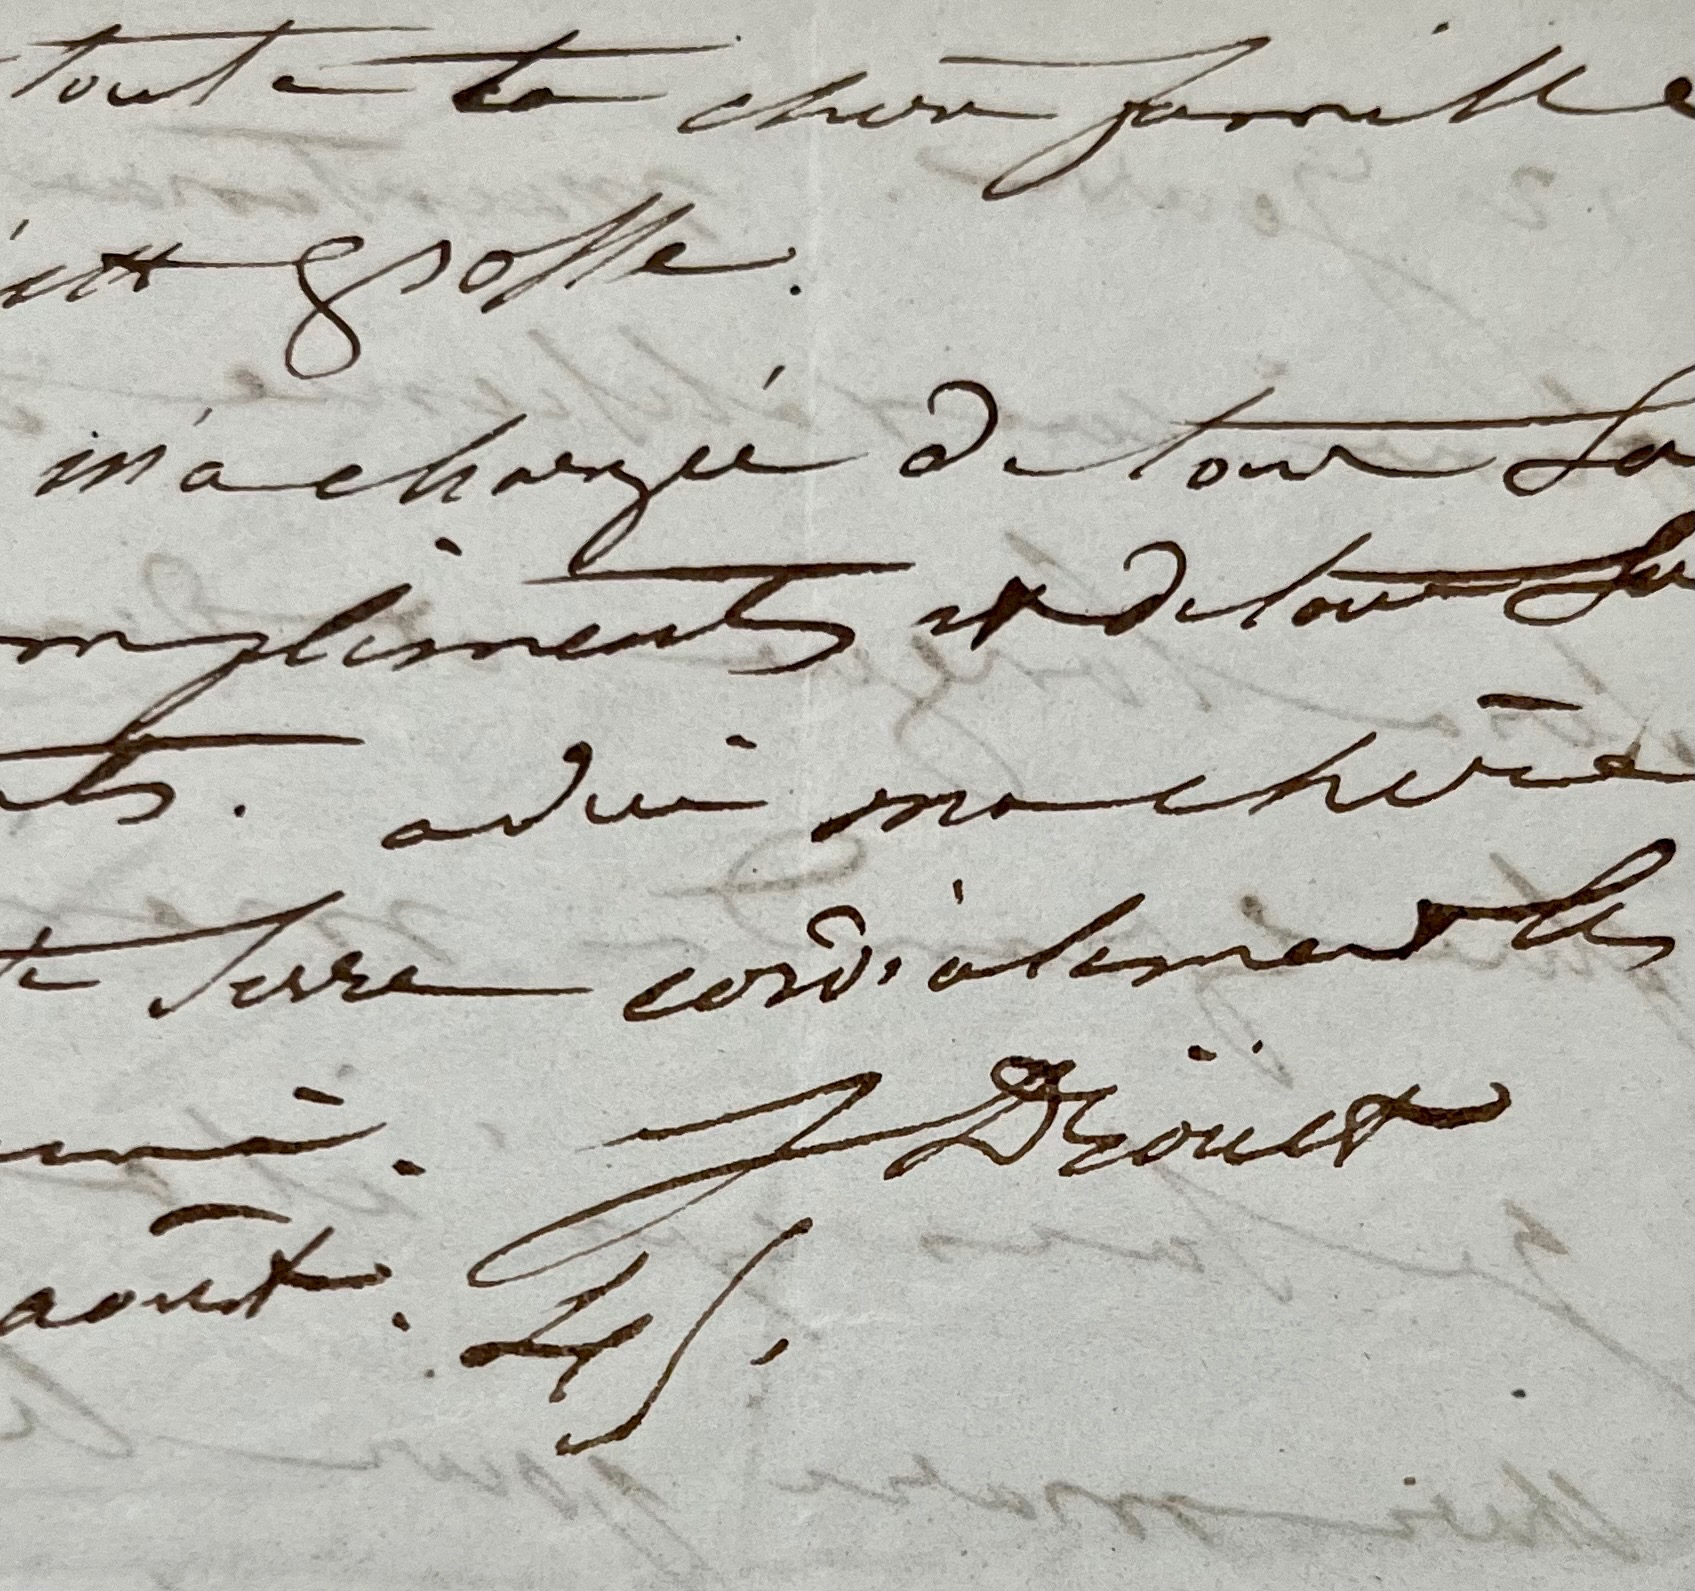 toute ta chère famille
grosse.
m'a chargée de tous Ses
mpliments et de tous Ses
adieu ma chère
te serre cordialement les
J Droüet
août. 45.